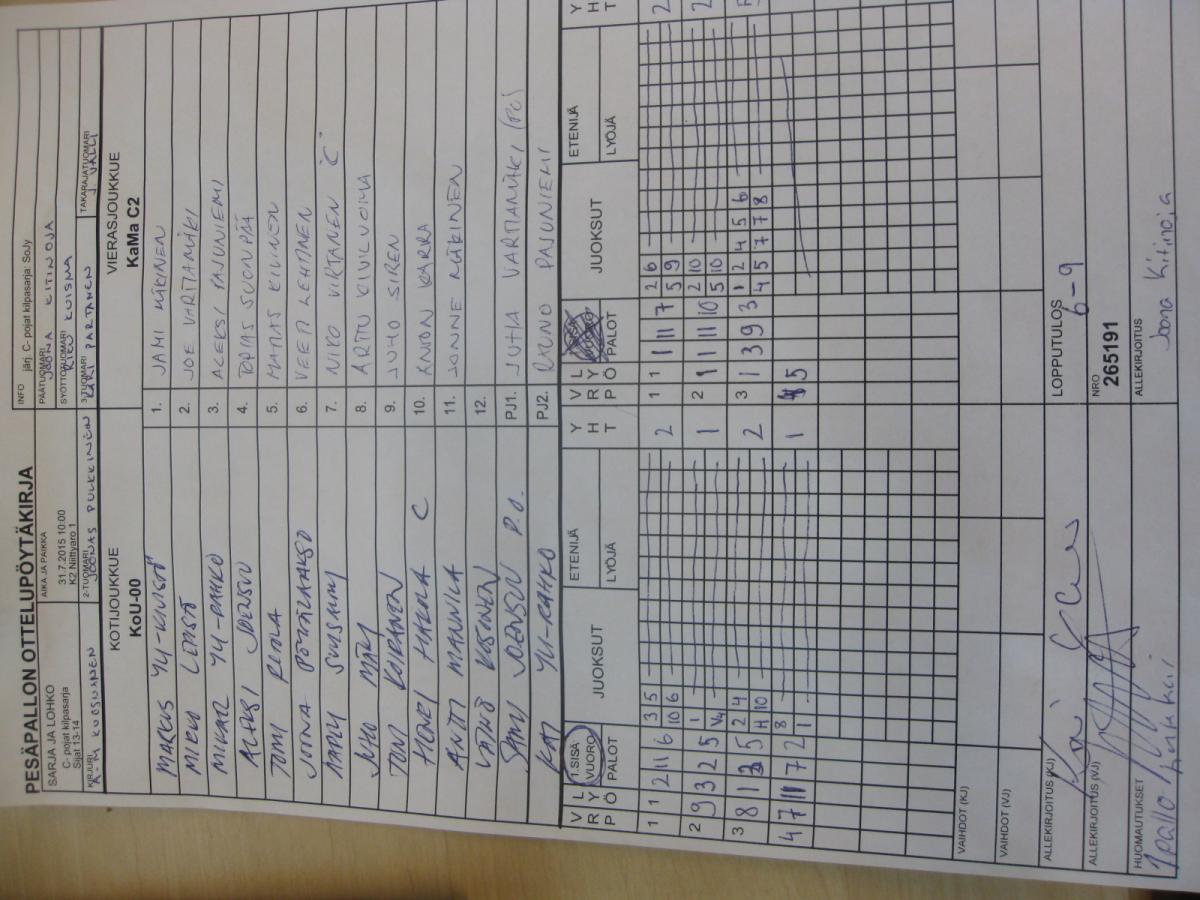 PESÄPALLON OTTELUPÖYTÄKIRJA
SARJA JA LOHKO
C- pojat kilpasarja
Sijat 13-14
AIKA JA PAIKKA
31.7.2015 10:00
K2 Niittyaro 1
INFO järj. C- pojat kilpasarja: SoJy
PÄÄTUOMARI
JOONA KITINOJA
SYÖTTÖTUOMARI
KUISMA
KIRJURI
2-TUOMARI
JOONAS PULKKINEN
3-TUOMARI
PARTANEN
TAKARAJATUOMARI
J. VALLI
KOTIJOUKKUE
KoU-00
VIERASJOUKKUE
KaMa C2
MARKUS YLI-KIVISTÖ 1. JAMI MÄKINEN
MIRO 2. JOE VARTIAMÄKI
MIKAEL YLI-RAHKO 3. ALEKSI PAJUNIEMI
ALEKSI JOENSUU 4. TOPIAS SUONPÄÄ
TOMI 5. MATIAS KIVINEN
JOONA PÖTÄLÄAKSO 6. VEETI LEHTINEN
7. NIKO VIRTANEN "C"
JUHO MÄKI 8. ARTTU KIVILUOMA
TONI KEIRANEN 9. JUHO SIREN
HENRI HAKALA C 10. ANTON KARRA
ANTTI MANNILA 11. JONNE MÄKINEN
VÄINÖ KOSONEN 12.
SAMI JOENSUU P.O. PJ1. JUHA VARTIAMÄKI (PO)
KAI YLI-RAHKO PJ2. RAUNO PAJUNIEMI
VRP LYÖ 1.SISÄ VUORO PALOT JUOKSUT ETENIJÄ LYÖJÄ YHT
1 1 2 11 6 3 5 2
10 6
2 9 3 2 5 1 1
V4
3 8 1 5 2 4 2
H 10
4 7 11 7 2 8 1
1
VRP LYÖ PALOT JUOKSUT ETENIJÄ LYÖJÄ YHT
1 1 1 11 7 2 6 2
5 9
2 1 11 11 10 2 10 2
5 10
3 1 3 9 3 1 2 4 5 6
4 5 7 7 8
5
VAIHDOT (KJ)
VAIHDOT (VJ)
ALLEKIRJOITUS (KJ)
ALLEKIRJOITUS (VJ)
HUOMAUTUKSET
1 pallo
LOPPUTULOS
6-9
NRO
265191
ALLEKIRJOITUS
Joona Kitinoja